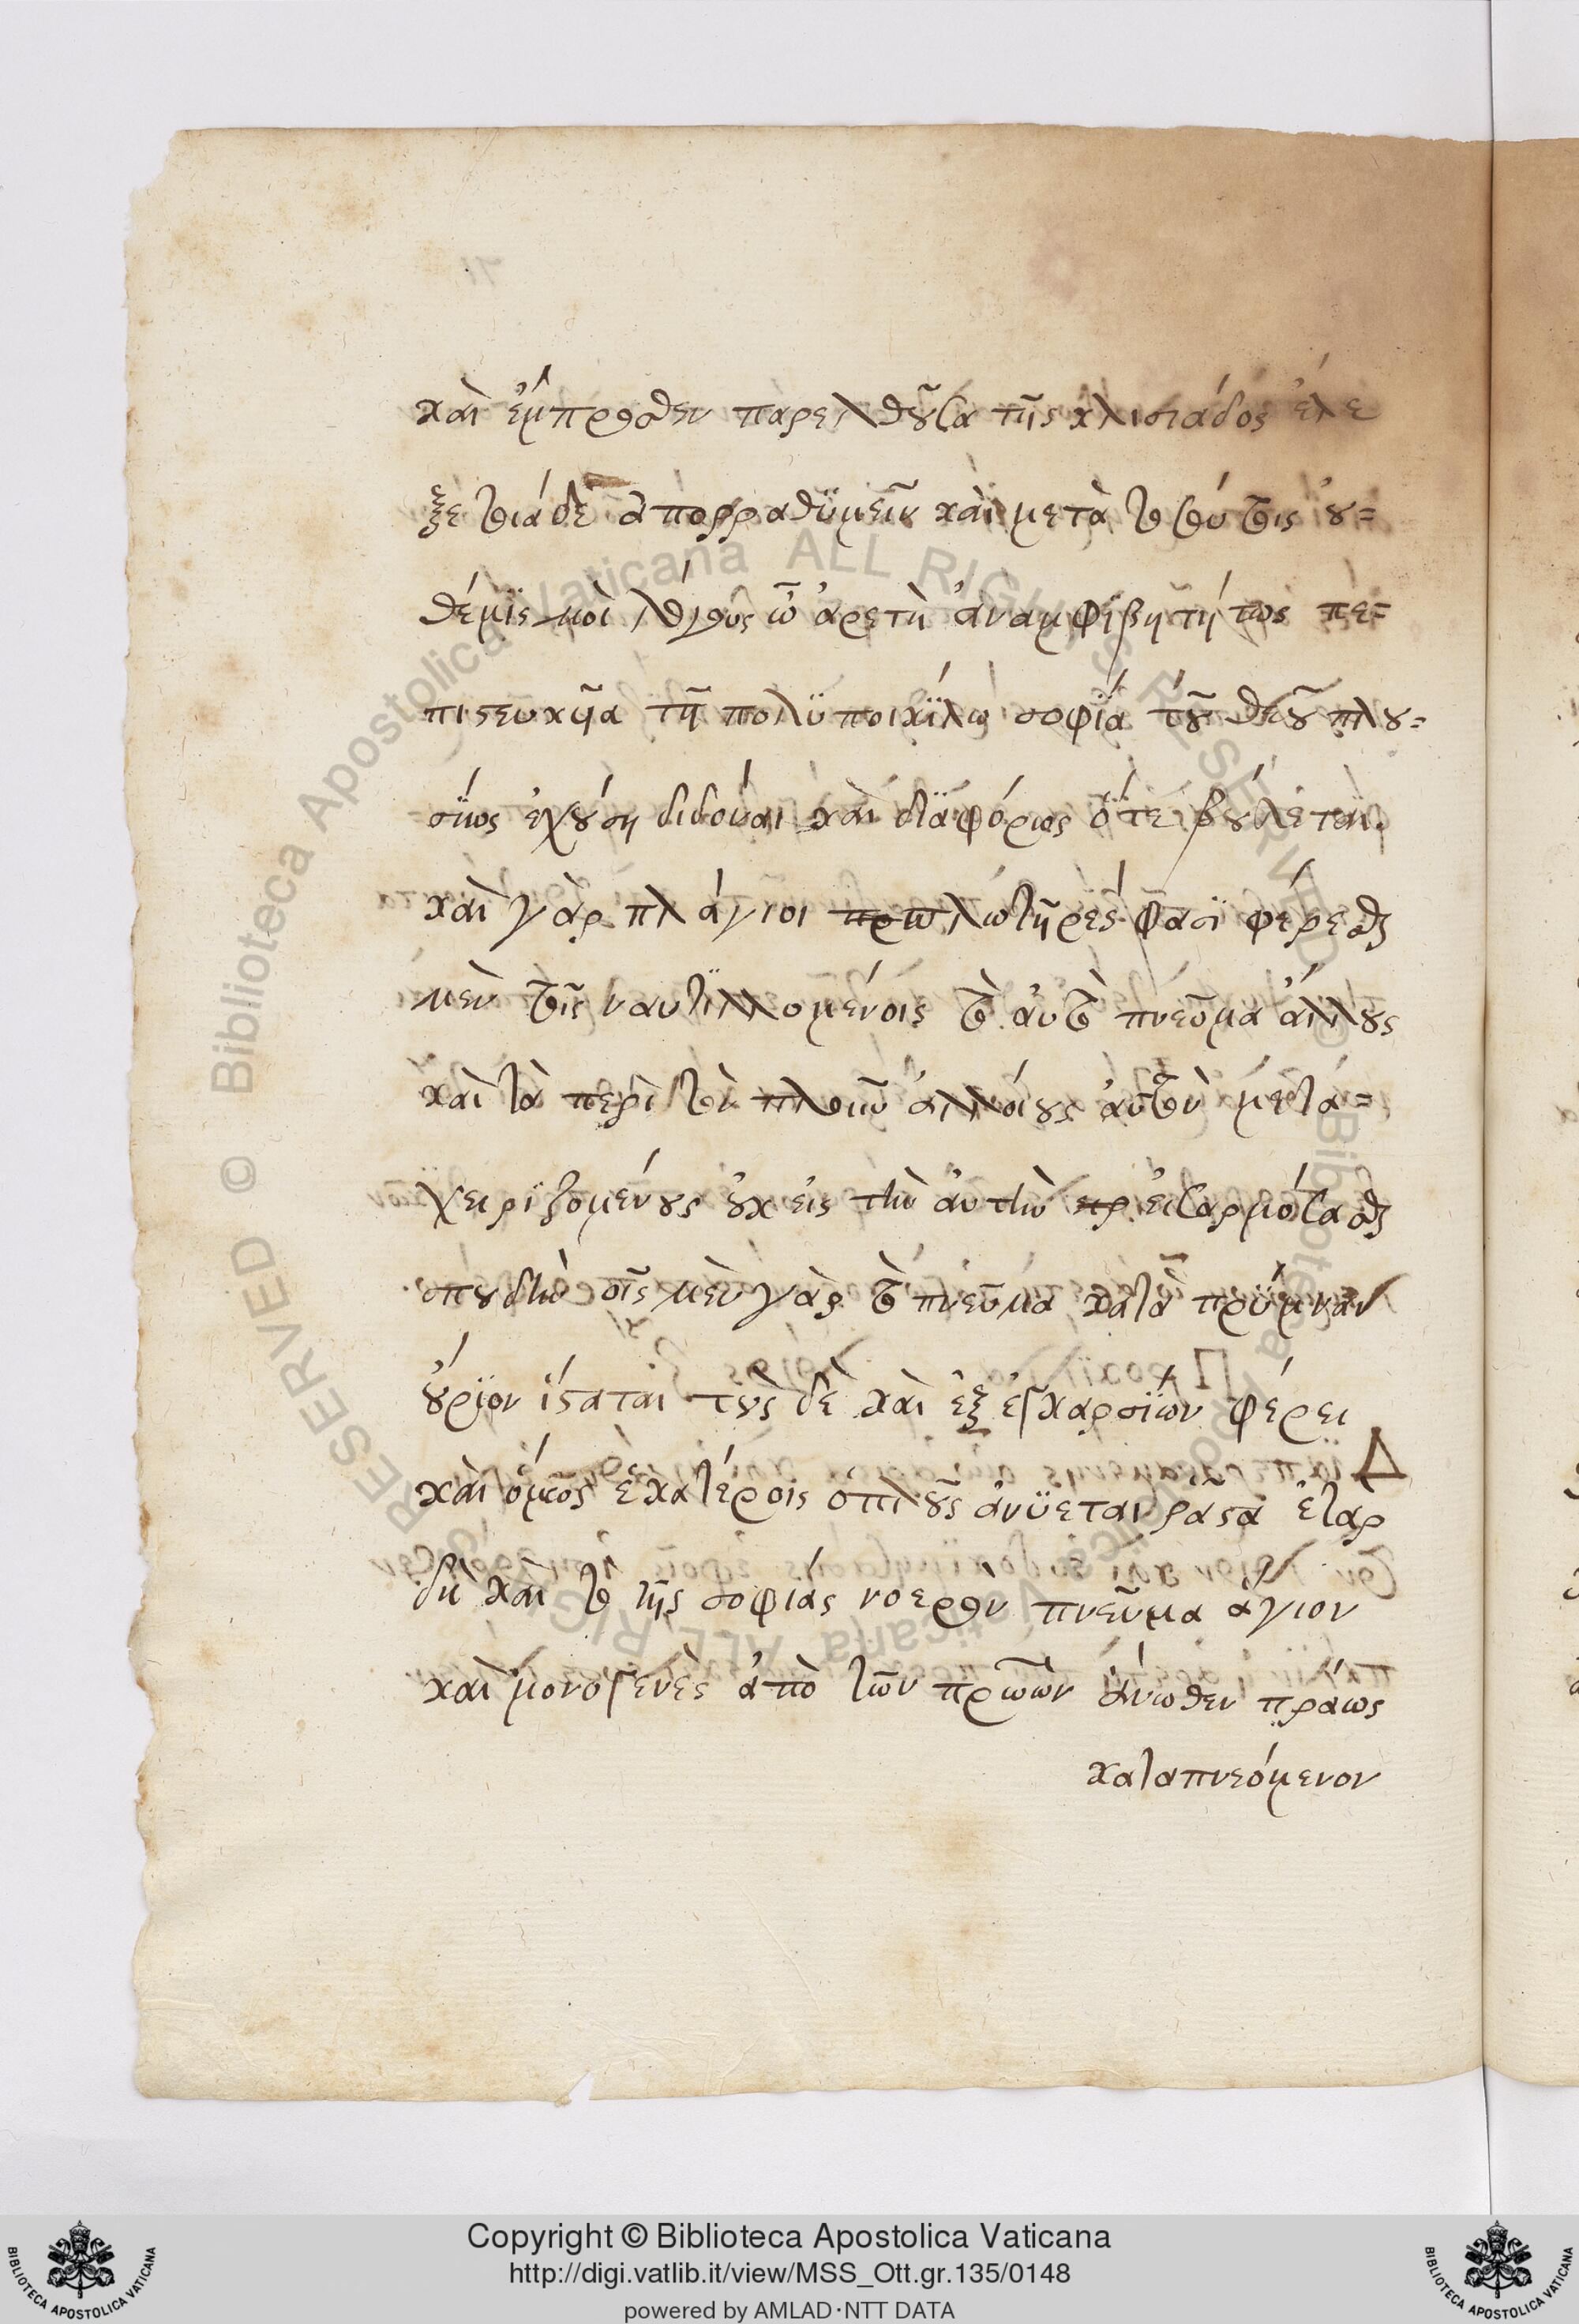 καὶ ἔμπροσθεν παρελθοῦσα τῆς κλισιάδος ἔλε
ξε τοιάδε ἀπορραθϋμεῖν καὶ μετὰ τοσούτοις οὐ=
θέμϊς μοὶ λόγους ὦ ἀρετὴ ἀναμφϊβητήτως πε=
πιστευκῆα τῆ πολϋποικΐλω σοφΐα τοῦ θεοῦ πλου=
σΐως ἐχούση διδόναι καὶ δϊαφόρως ὅτε βούλεται.
καὶ γὰρ πλάγιοι πλωτῆρες φασϊ φέρεσθαι
μὲν τοῖς ναυτϊλλομένοις τὸ ἀυτὸ πνεῦμα ἄλλους
καὶ τὰ περὶ τὸν πλοῦν ἀλλοίους ἀυτὸν μετα=
χειρϊζομένους οὐκ εἰς τὴν ἀυτὴν εἰσαρμόσασθαι
σπουδὴν οἷς μὲν γὰρ τὸ πνεῦμα κατὰ πρύμναν
οὔρϊον ἵσταται τοὺς δὲ καὶ ἐξ ἐγκαρσϊων φέρει
καὶ ὅμως ἑκατέροις ὁ πλοῦς ἀνϋεται ρᾶστα ἐταρ
δὴ καὶ τὸ τῆς σοφίας νοερὸν πνεῦμα ἅγιον
καὶ μονογενὲς ἀπὸ τῶν πρώτων ἄνωθεν πράως
καταπνεόμενον
Δ
Copyright © Biblioteca Apostolica Vaticana
http://digi.vatlib.it/view/MSS_Ott.gr.135/0148
powered by AMLAD·NTT DATA
BIBLIOTECA APOSTOLICA VATICANA
BIBLIOTECA APOSTOLICA VATICANA